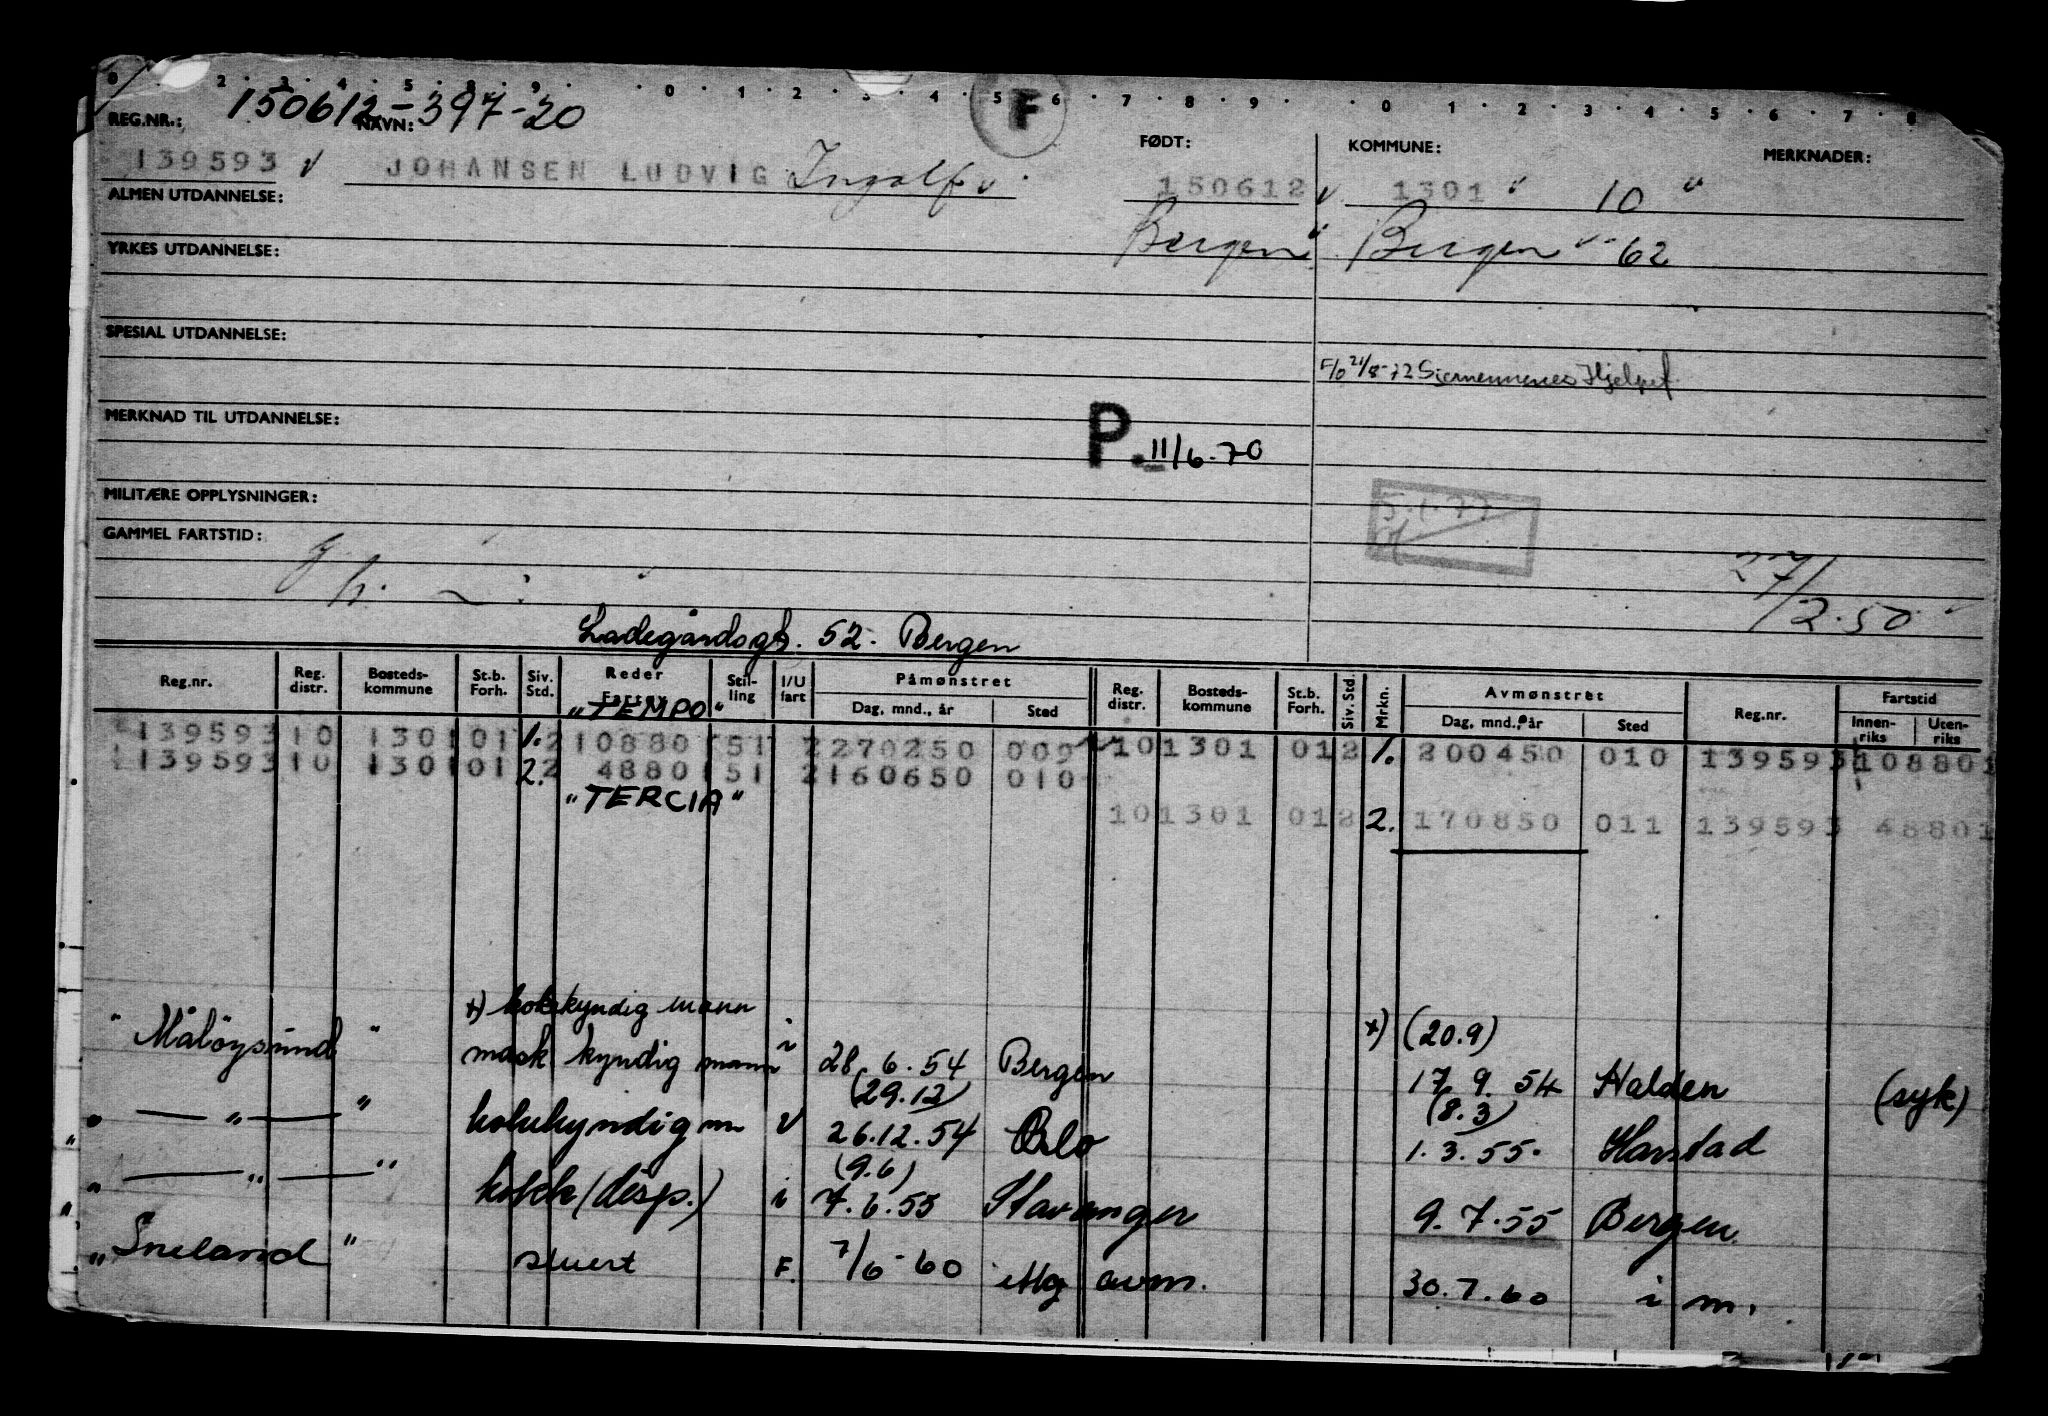 0 . 2 . 3 . 4 . 5 . 8 . 9 . 0 . 1 . 2 . 3 . 4 . 5 . 6 . 7 . 8 . 9 . 0 . 1 . 2 . 3 . 4 . 5 . 6 . 7 . 8
F
REG.NR.: 150612-397-20 NAVN: FØDT: KOMMUNE: MERKNADER:
139593 JOHANSEN LUDVIG Ingolf 150612 1301 10
ALMEN UTDANNELSE:
Bergen Bergen 62
YRKES UTDANNELSE:
SPESIAL UTDANNELSE:
F/O 21/8-72 Sjømennenes Hjelpef
MERKNAD TIL UTDANNELSE:
P. 11/6-70
MILITÆRE OPPLYSNINGER:
5.1.77
GAMMEL FARTSTID:
27/2.50
Ladegårdsgt. 52. Bergen
Reg.nr. Reg. distr. Bosteds-kommune St.b. Forh. Siv. Std. Reder Fartøy Stil-ling I/U fart Påmønstret Dag, mnd., år Sted Reg. distr. Bosteds-kommune St.b. Forh. Siv. Std. Mrkn. Avmønstret Dag, mnd., år Sted Reg.nr. Fartstid Innen-riks Uten-riks
"TEMPO"
139593 10 1301 01 1. 2 10880 151 2 270250 009 10 1301 01 2 1. 200450 010 139593 108801
139593 10 1301 01 2. 2 4880 151 2 160650 010
"TERCIA"
10 1301 01 2 2. 170850 011 139593 48801
x) kokekyndig mann x) (20.9)
"Måløysund" mask kyndig mann i 28.6.54 Bergen 17.9.54 Halden (syk)
(29.12) (8.3)
" — " — " kokekyndig m 26.12.54 Oslo 1.3.55. Harstad
(9.6)
" — " — " kokk (disp.) i 7.6.55 Stavanger 9.7.55 Bergen
"Sneland" stuert F. 7/6-60 avm. 30.7.60 i m.